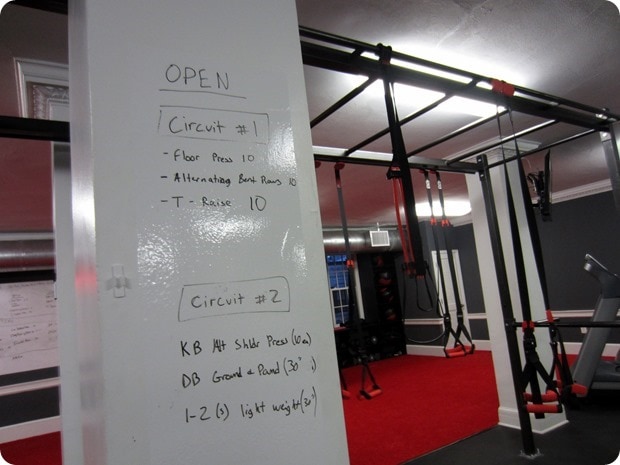 OPEN
Circuit #1
- Floor Press 10
- Alternating Bent Rows 10
- T - Raise 10
Circuit #2
KB Alt Shldr Press (10 ea)
DB Ground & Pound (30"
1-2 (s) light weight (30")